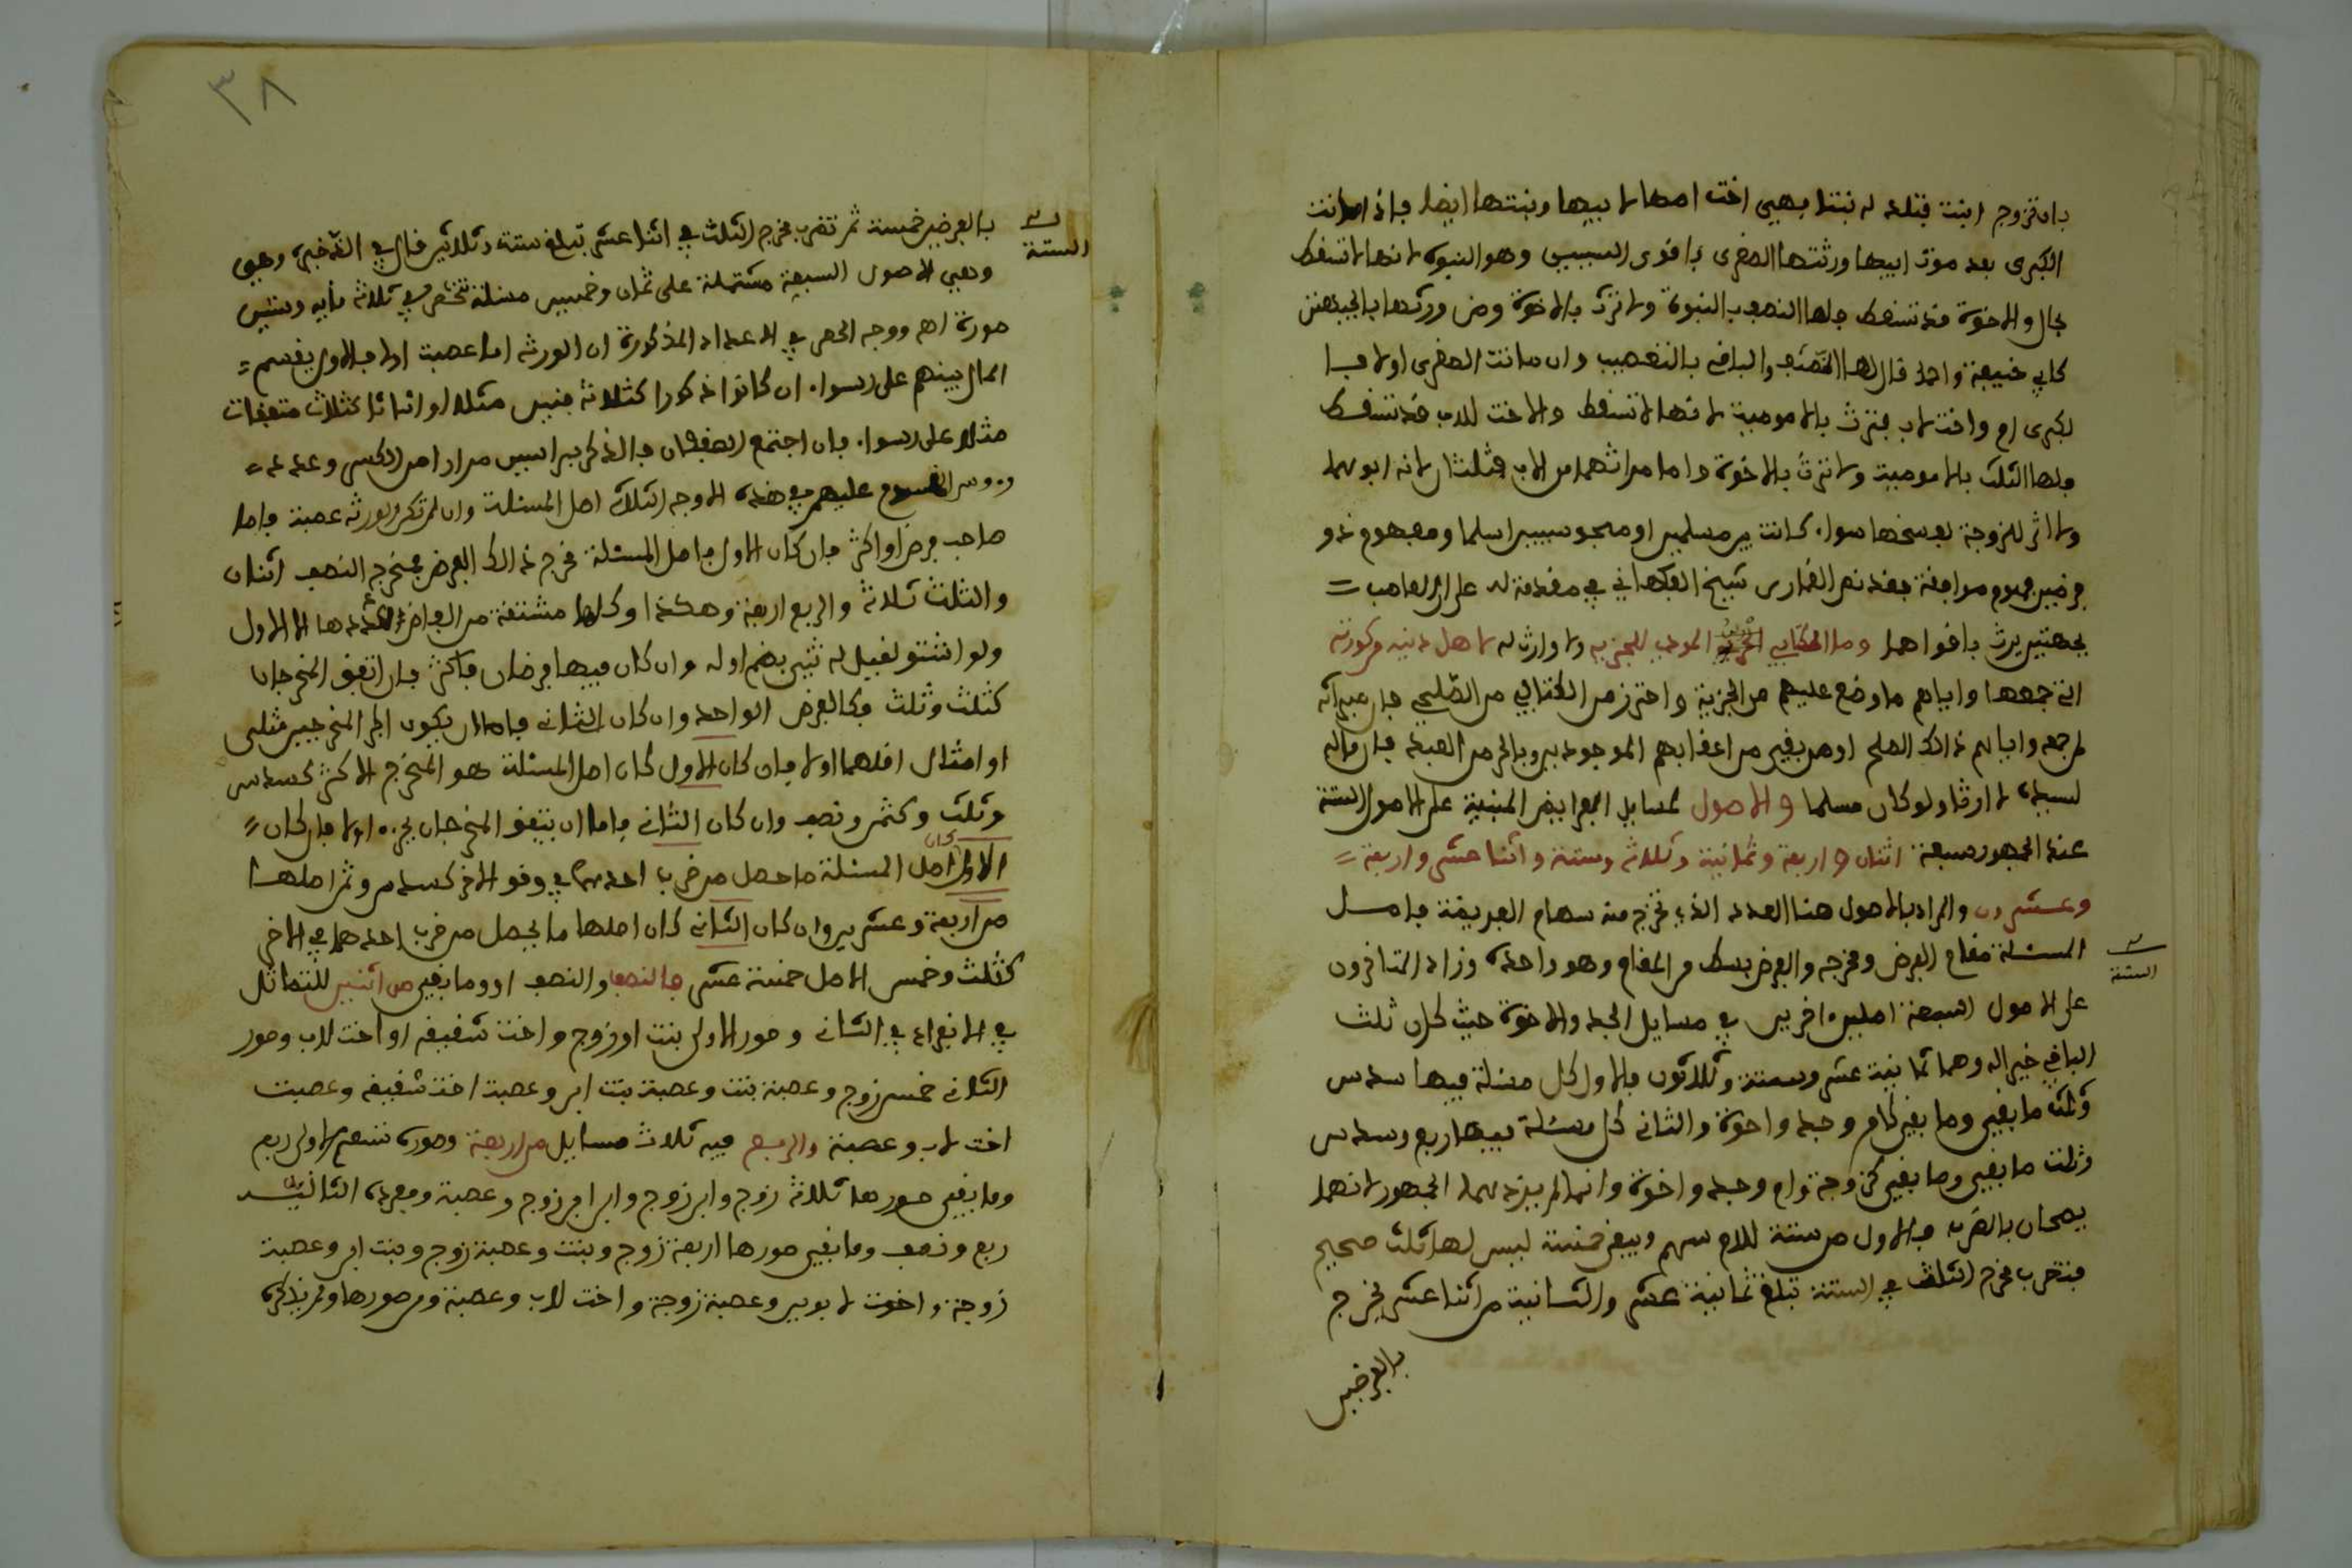 بان تزوج ابنته فتلد له بنتا فهي اخت امها لابيها وبنتها ايضا فاذا ماتت
الكبرى بعد موت ابيها ورثتها الصغرى باقوى السببين وهو البنوة لانها لا تسقط
بحال والاخوة قد تسقط فلها النصف بالبنوة ولا ترث بالاخوة ومن ورثها بالجهتين
كابي حنيفة واحمد قال لها النصف والباقي بالتعصيب وان ماتت الصغرى اولا فا
لكبرى ام واخت لاب فترث بالامومة لانها لا تسقط والاخت للاب قد تسقط
فلها الثلث بالامومة ولا ترث بالاخوة واما ميراثهما من الاب فثلثان لانه ابوهما
ولا اثر للزوجة لفسخها سوا كانت بين مسلمين او مجوسيين اسلما ومفهوم ذو
فرضين مفهوم موافقة فقد نص شيخ في مقدمة له على ان العاصب
بجهتين يرث باقواهما ومال الكتابي الحر المودي للجزية ولا وارث له لاهل دينه من كورته
التي جمعها واياهم ما وضع عليهم من الجزية واحترز من الكتابي من الصلحي فان
لم يجمعه واياهم ذالك الصلح او من بقي من اعقابهم الموجودين وبالحر من العبد فان ماله
لسيده لا ارثا ولو كان مسلما والاصول لمسايل الفرايض المبنية على الاصول الستة
عند الجمهور سبعة اثنان واربعة وثمانية وثلاثة وستة واثنا عشر واربعة
وعشرون والمراد بالاصول هنا العدد الذي تخرج منه سهام الفريضة فاصل
المسئلة مقام الفرض ومخرجه والفرض بسط من المقام وهو واحده وزاد المتاخرون
الستة
على الاصول السبعة اصلين اخرين في مسايل الجد والاخوة حيث كان ثلث
الباقي خير له وهما ثمانية عشر وستة وثلاثون فالاول كل مسئلة فيها سدس
وثلث ما بقي وما بقي كام وجد واخوة والثاني كل مسئلة فيها ربع وسدس
وثلث ما بقي وما بقي كزوجة وام وجد واخوة وانما لم يزدهما الجمهور لانهما
يصحان بالضرب فالاول من ستة للام سهم ويبقى خمسة ليس لها ثلث صحيح
فتضرب مخرج الثلث في الستة تبلغ ثمانية عشر والثانية من اثنا عشر يخرج
بالفرضين
٣٨
بالفرضين خمسة ثم تضرب مخرج الثلث في اثنا عشر تبلغ ستة وثلاثين قال في الذخيرة وهي
الستة
وهي الاصول السبعة مشتملة على ثمان وخمسين مسئلة تنحصر في ثلاثة ماية وستين
صورة اهـ ووجه الحصر في الاعداد المذكورة ان الورثة اما عصبة او لا فالاول يقسم
المال بينهم على السوا ان كانوا ذكورا كثلاثة بنين مثلا او اناثا كثلاث معتقات
مثلا على السوا فان اجتمع الصنفان فالذكر براسين فرارا من الكسر وعدد
رءوس المقسوم عليهم في هذه الاوجه الثلاثة اصل المسئلة وان لم تكن الورثة عصبة فاما
صاحب فرض او اكثر فان كان الاول فاصل المسئلة مخرج ذالك الفرض فمخرج النصف اثنان
والثلث ثلاثة والربع اربعة وهكذا وكلها مشتقة من الفاظ عددها الا الاول
ولو اشتق لقيل له ثني بضم اوله وان كان فيها فرضان فاكثر فان اتفق المخرجان
كثلث وثلث فكالفرض الواحد وان كان الثاني فاما ان يكون اكبر المخرجين مثلي
او امثال اقلهما اولا فان كان الاول كان اصل المسئلة هو المخرج الاكثر كسدس
وثلث وكثمن ونصف وان كان الثاني فاما ان يتفق المخرجان بجزء اولا فان كان
الاول كان اصل المسئلة ما حصل من ضرب احدهما في وفق الاخر كسدس وثمن اصلها
من اربعة وعشرين وان كان الثاني كان اصلها ما يحصل من ضرب احدهما في الاخر
كثلث وخمس الاصل خمسة عشر فالنصف والنصف او وما بقي من اثنين للتماثل
في الانفراد في الثاني وصور الاولى بنت او زوج واخت شقيقة او اخت للاب وصور
الثاني خمس زوج وعصبة بنت وعصبة بنت ابن وعصبة اخت شقيقة وعصبة
اخت لاب وعصبة والربع فيه ثلاث مسايل من اربعة وصوره تسعة الاولى ربع
وما بقي صورها ثلاثة زوج وابن زوج وابن ابن زوج وعصبة الثانية
ربع ونصف وما بقي صورها اربعة زوج وبنت وعصبة زوج وبنت ابن وعصبة
زوجة واخت لابوين وعصبة زوجة واخت للاب وعصبة ومن صورها